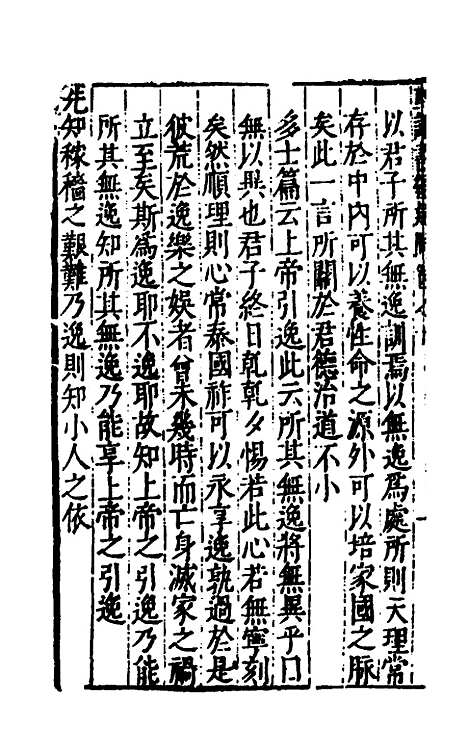 以君子所其無逸訓焉以無逸爲處所則天理常
存於中内可以養性命之源外可以培家國之脉
矣此一言所關於君德治道不小
多士篇云上帝引逸此云所其無逸將無異乎曰
無以異也君子終日乾乾夕惕若此心若無寧刻
矣然順理則心常泰國祚可以永享逸孰過於是
彼荒於逸樂之娱者曾未幾時而亡身滅家之禍
立至矣斯爲逸耶不逸耶故知上帝之引逸乃能
所其無逸知所其無逸乃能享上帝之引逸
先知稼穡之艱難乃逸則知小人之依